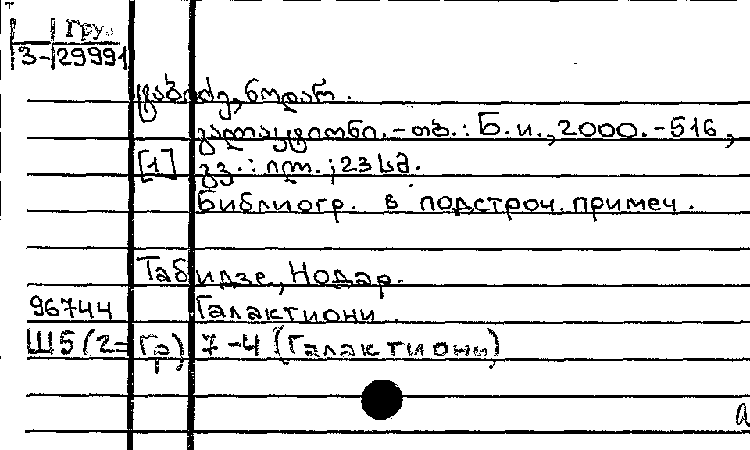 Гру.
3-29991
ტაბიძე, ნოდარ.
გალაკტიონი.-თბ.: Б.и., 2000.-516,
[1] გვ.: ილ.; 23 სმ.
Библиогр. в подстроч. примеч.
Табидзе, Нодар.
96744 Галактиони.
Ш5(2=Гр) 7-4 (Галактиони)